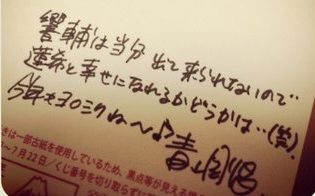 響輔は当分出て来られないので…
蓮希と幸せになれるかどうかは…(笑)
今年もヨロシクね〜♪ 青山剛昌
きは一部古紙を使用しているため、黒点等が見える場
〜7月22日/くじ番号を切り取らずに